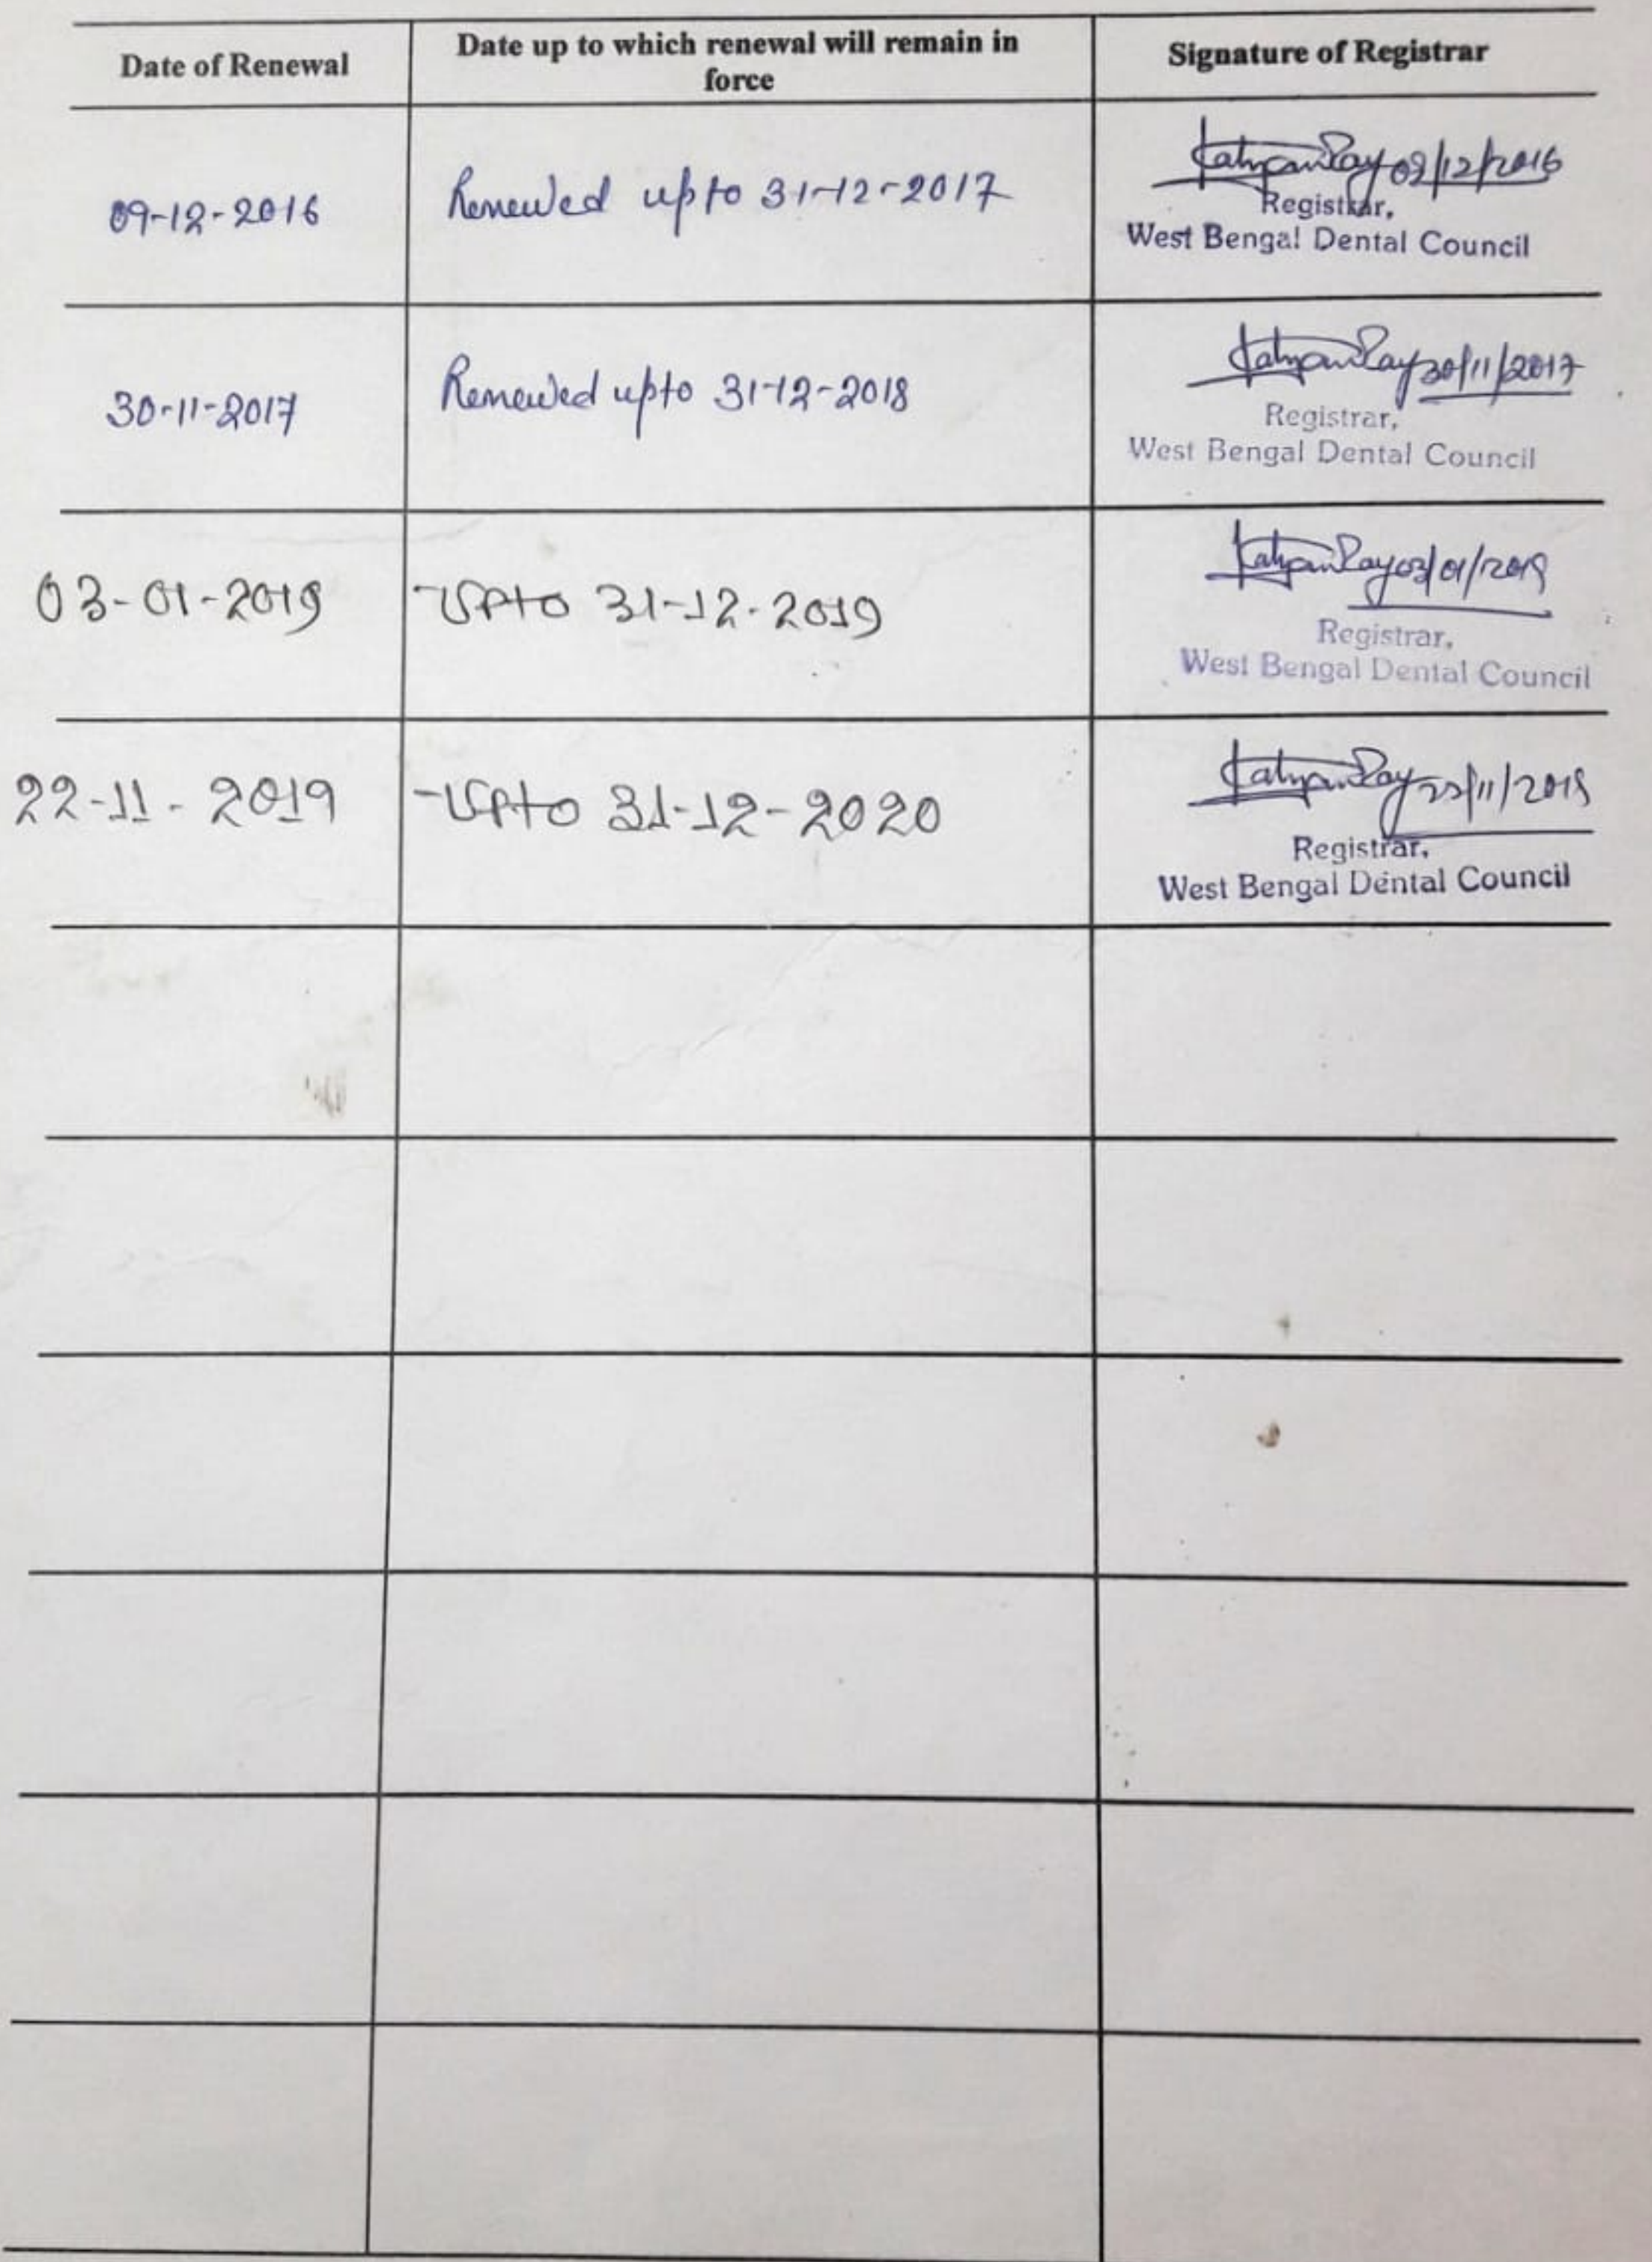 Date of Renewal
Date up to which renewal will remain in
force
Signature of Registrar
09-12-2016
Renewed upto 31-12-2017
Kalyan Ray 09/12/2016
Registrar,
West Bengal Dental Council
30-11-2017
Renewed upto 31-12-2018
Kalyan Ray 30/11/2017
Registrar,
West Bengal Dental Council
03-01-2019
Upto 31-12-2019
Kalyan Ray 03/01/2019
Registrar,
West Bengal Dental Council
22-11-2019
Upto 31-12-2020
Kalyan Ray 22/11/2019
Registrar,
West Bengal Dental Council